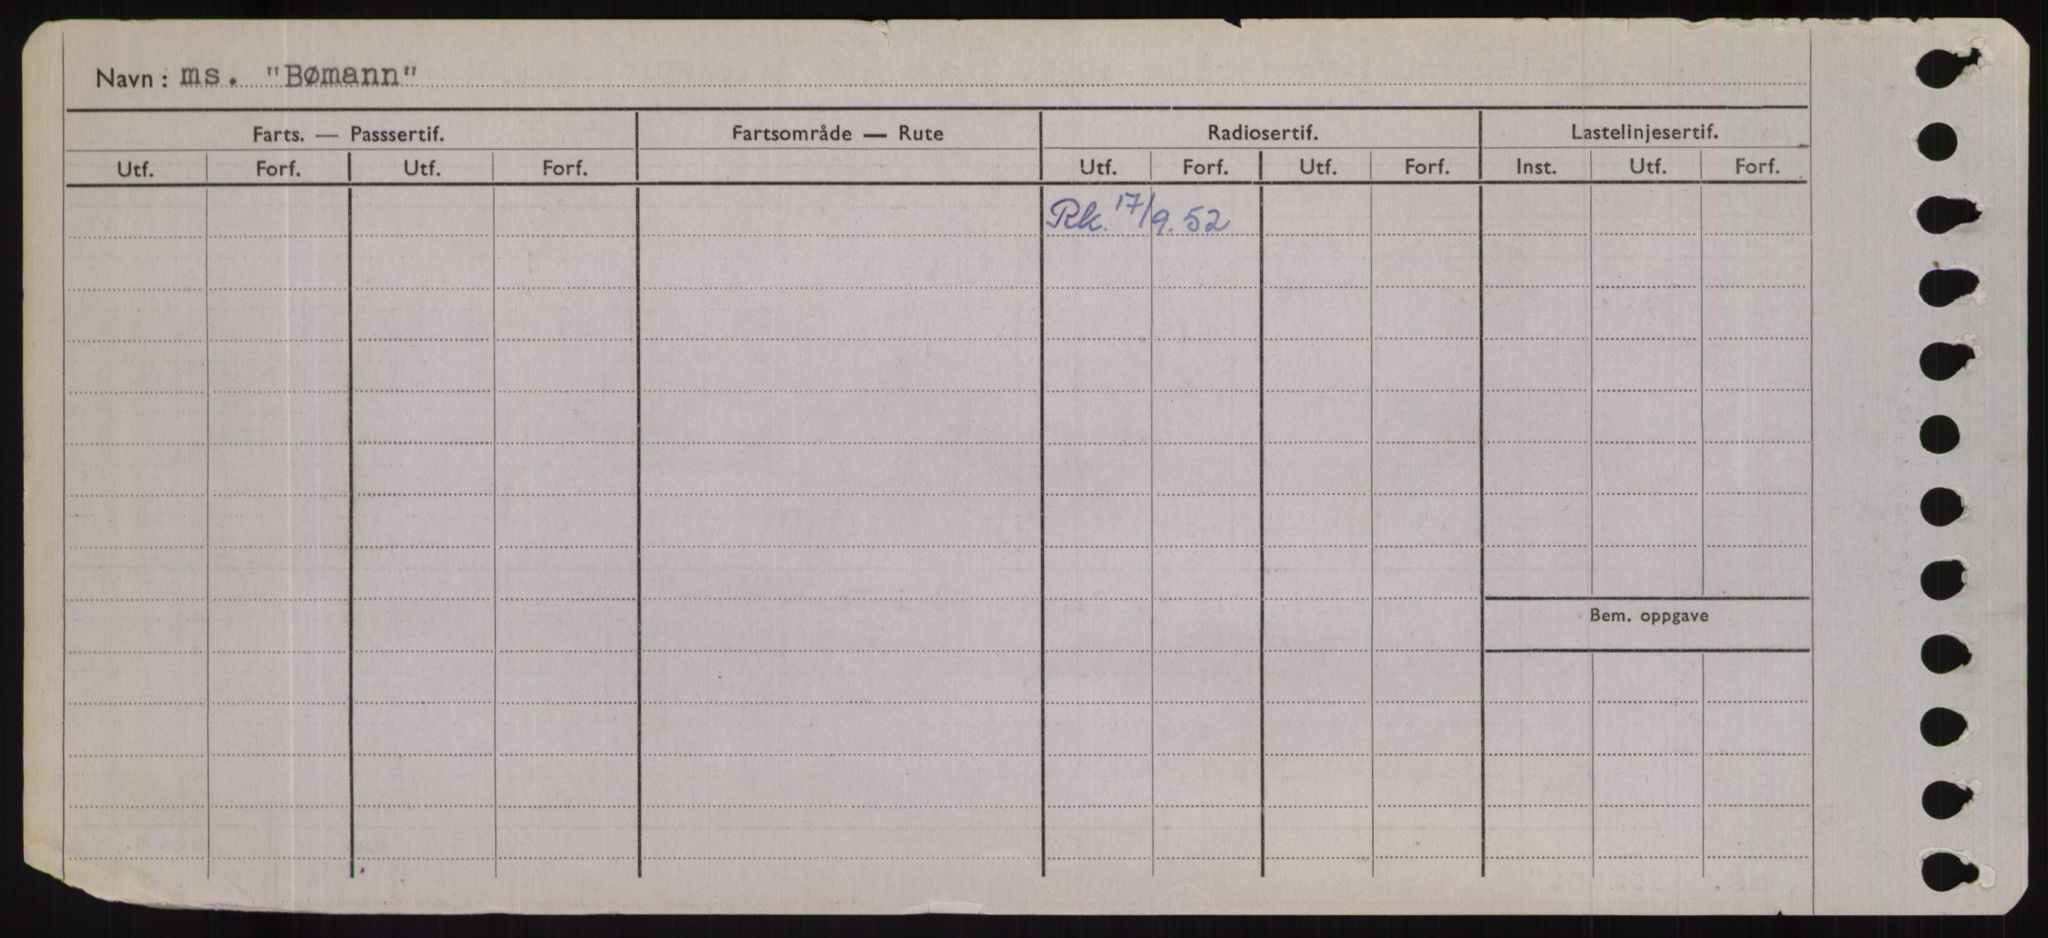 Navn: ms. "Bømann"
Farts. — Passsertif. Fartsområde — Rute Radiosertif. Lastelinjesertif.
Utf. Forf. Utf. Forf. Utf. Forf. Utf. Forf. Inst. Utf. Forf.
Rk. 17/9. 52
Bem. oppgave